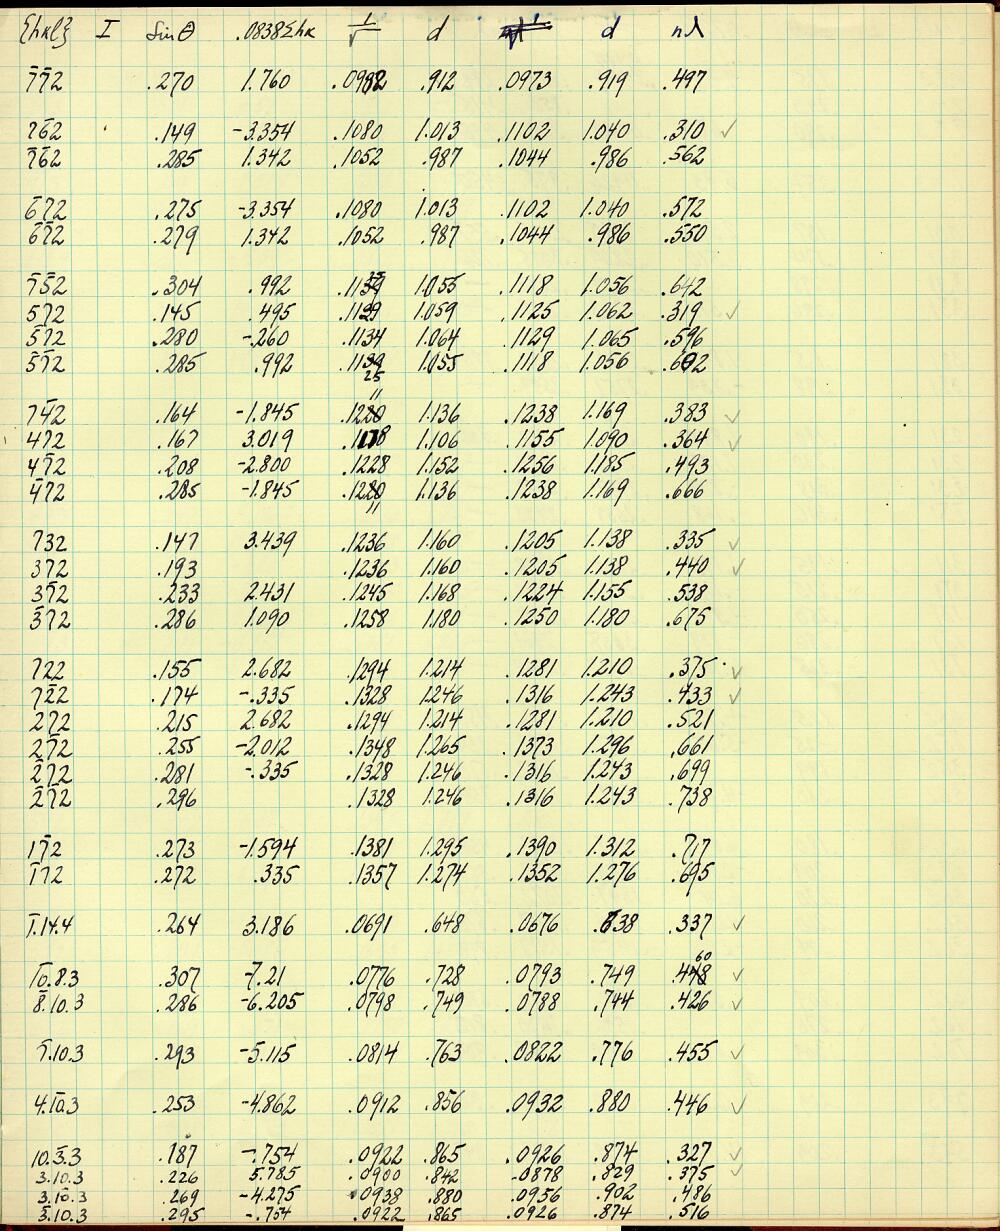 {hkl} I Sin θ .0838Σhk 1/√ d d nλ
7̄7̄2 .270 1.760 .0982 .912 .0973 .919 .497
76̄2 .149 -3.354 .1080 1.013 .1102 1.040 .310 ✓
7̄6̄2 .285 1.342 .1052 .987 .1044 .986 .562
6̄72 .275 -3.354 .1080 1.013 .1102 1.040 .572
6̄7̄2 .279 1.342 .1052 .987 .1044 .986 .550
7̄5̄2 .304 .992 .1125 1.055 .1118 1.056 .642
572 .145 .495 .1129 1.059 .1125 1.062 .319 ✓
57̄2 .280 -.260 .1134 1.064 .1129 1.065 .596
5̄7̄2 .285 .992 .1125 1.055 .1118 1.056 .602
74̄2 .164 -1.845 .1211 1.136 .1238 1.169 .383 ✓
472 .167 3.019 .1178 1.106 .1155 1.090 .364 ✓
47̄2 .208 -2.800 .1228 1.152 .1256 1.185 .493
4̄72 .285 -1.845 .1211 1.136 .1238 1.169 .666
732 .147 3.439 .1236 1.160 .1205 1.138 .335 ✓
372 .193 .1236 1.160 .1205 1.138 .440 ✓
37̄2 .233 2.431 .1245 1.168 .1224 1.155 .538
3̄72 .286 1.090 .1258 1.180 .1250 1.180 .675
722 .155 2.682 .1294 1.214 .1281 1.210 .375 ✓
72̄2 .174 -.335 .1328 1.246 .1316 1.243 .433 ✓
272 .215 2.682 .1294 1.214 .1281 1.210 .521
27̄2 .255 -2.012 .1348 1.265 .1373 1.296 .661
2̄72 .281 -.335 .1328 1.246 .1316 1.243 .699
2̄7̄2 .296 .1328 1.246 .1316 1.243 .738
17̄2 .273 -1.594 .1381 1.295 .1390 1.312 .717
1̄72 .272 .335 .1357 1.274 .1352 1.276 .695
1̄.14.4 .264 3.186 .0691 .648 .0676 .638 .337 ✓
1̄0̄.8.3 .307 -7.21 .0776 .728 .0793 .749 .460 ✓
8̄.10.3 .286 -6.205 .0798 .749 .0788 .744 .426 ✓
5̄.10.3 .293 -5.115 .0814 .763 .0822 .776 .455 ✓
4.1̄0̄.3 .253 -4.862 .0912 .856 .0932 .880 .446 ✓
10.3̄.3 .187 -.754 .0922 .865 .0926 .874 .327 ✓
3.10.3 .226 5.785 .0900 .842 .0878 .829 .375 ✓
3.1̄0̄.3 .269 -4.275 .0938 .880 .0956 .902 .486
3̄.10.3 .295 -.754 .0922 .865 .0926 .874 .516